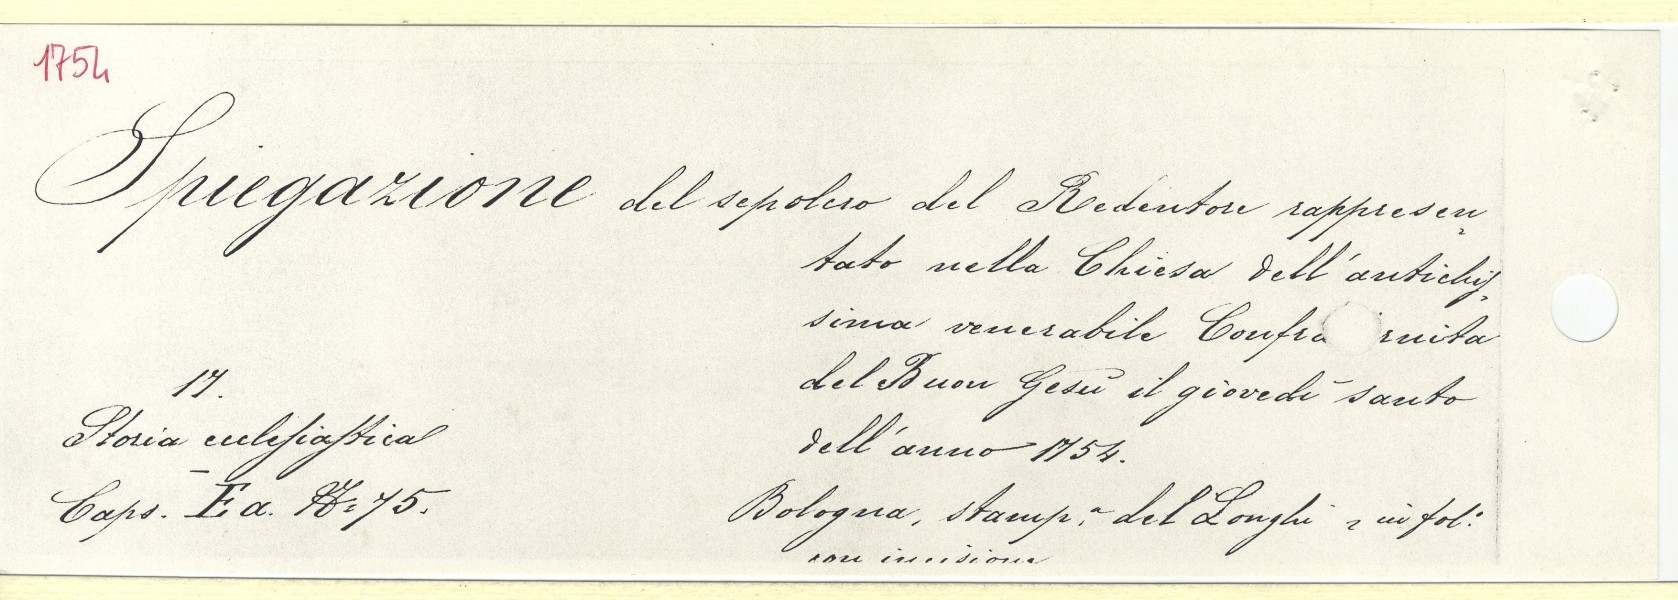 1754
Spiegazione del sepolcro del Redentore rappresen-
tato nella Chiesa dell'antichis-
sima venerabile Confra rnita
del Buon Gesù il giovedì santo
dell'anno 1754.
17.
Storia ecclesiastica
Caps. Ea. No 75.
Bologna, stamp.a del Longhi, in fol.
con incisione